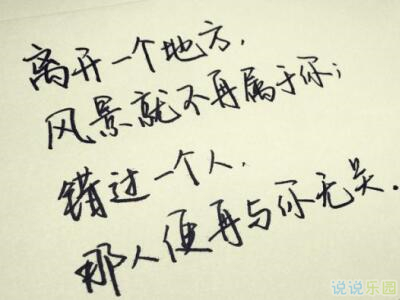 离开一个地方,
风景就不再属于你;
错过一个人.
那人便再与你无关.
说说乐园